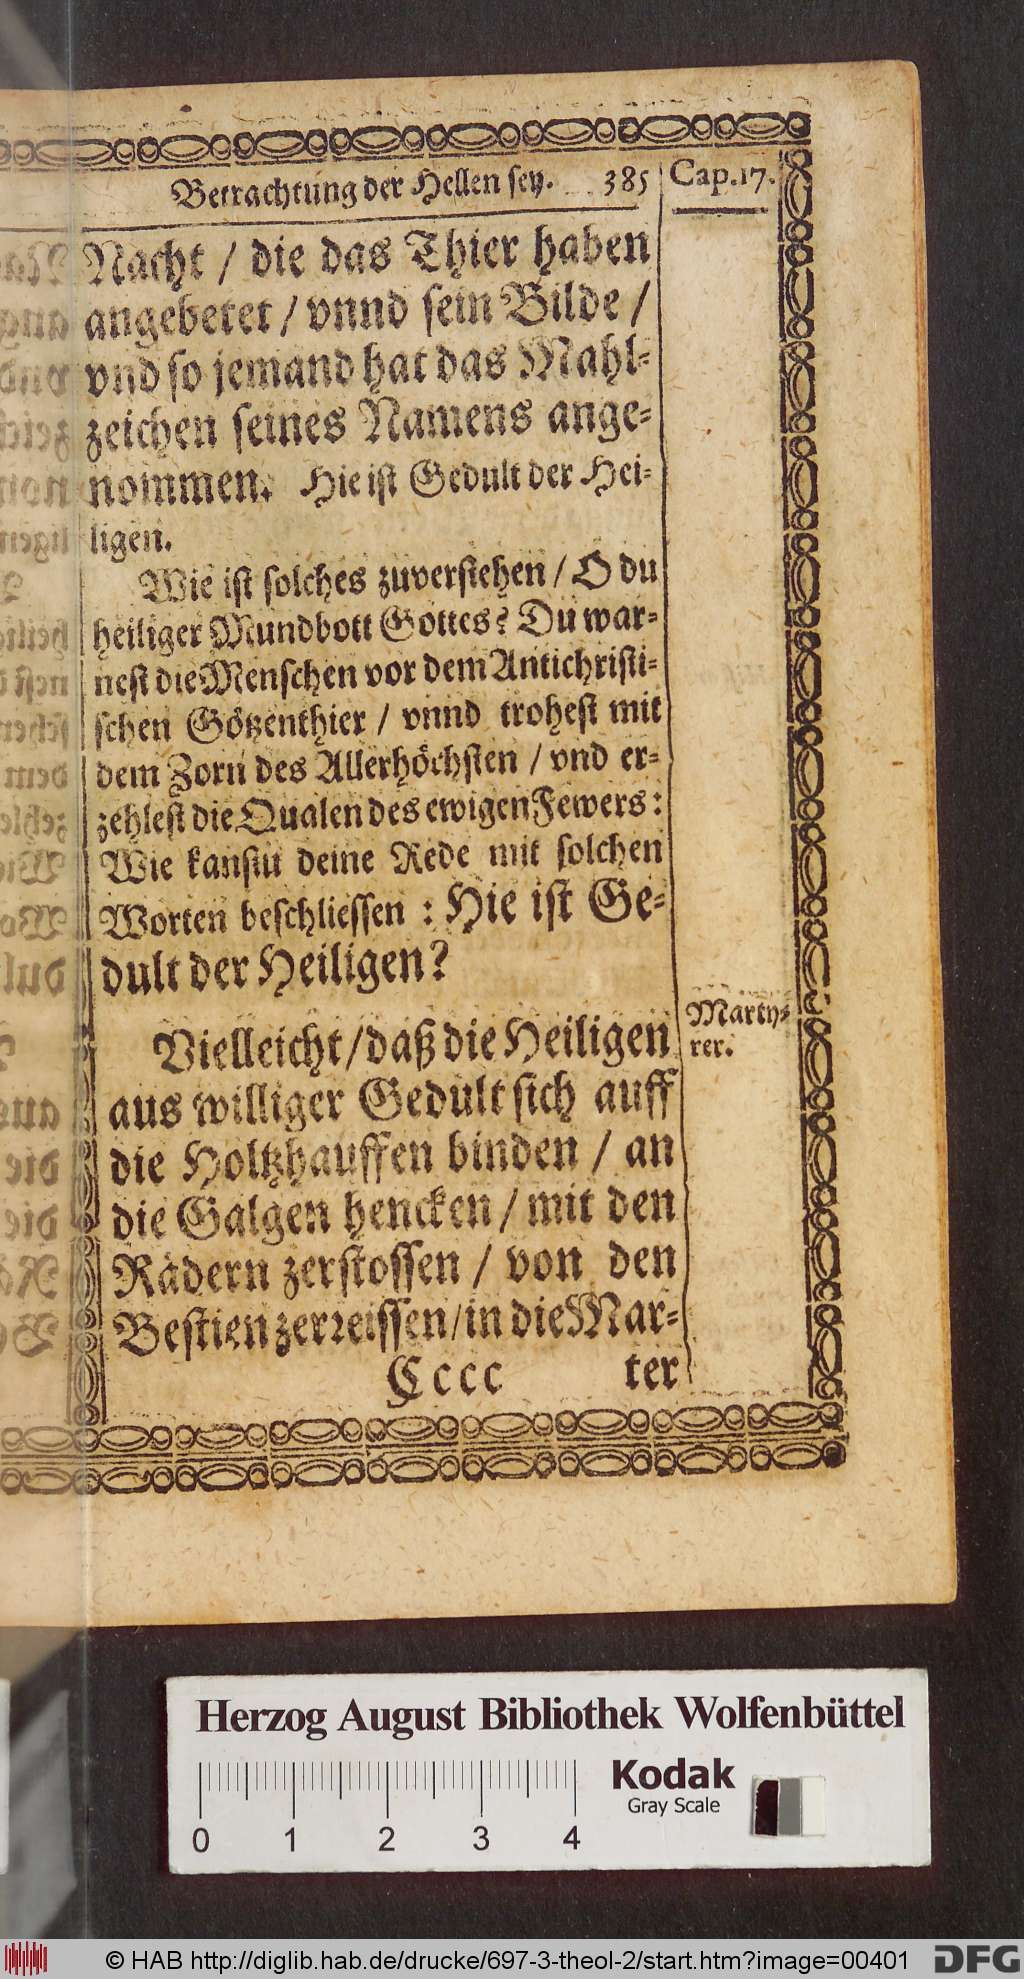 Betrachtung der Hellen sey. 385 Cap.17.
Nacht / die das Thier haben
angebetet / vnnd sein Bilde /
vnd so jemand hat das Mahl-
zeichen seines Namens ange-
nommen. Hie ist Gedult der Hei-
ligen.
Wie ist solches zuverstehen / O du
heiliger Mundbott Gottes? Du war-
nest die Menschen vor dem Antichristi-
schen Götzenthier / vnnd trohest mit
dem Zorn des Allerhöchsten / vnd er-
zehlest die Qualen des ewigen Fewers:
Wie kanstu deine Rede mit solchen
Worten beschliessen: Hie ist Ge-
dult der Heiligen?
Vielleicht / daß die Heiligen
aus williger Gedult sich auff
die Holtzhauffen binden / an
die Galgen hencken / mit den
Rädern zerstossen / von den
Bestien zerreissen / in die Mar-
Cccc ter
Marty-
rer.
Herzog August Bibliothek Wolfenbüttel
Kodak
Gray Scale
0 1 2 3 4
© HAB http://diglib.hab.de/drucke/697-3-theol-2/start.htm?image=00401
DFG